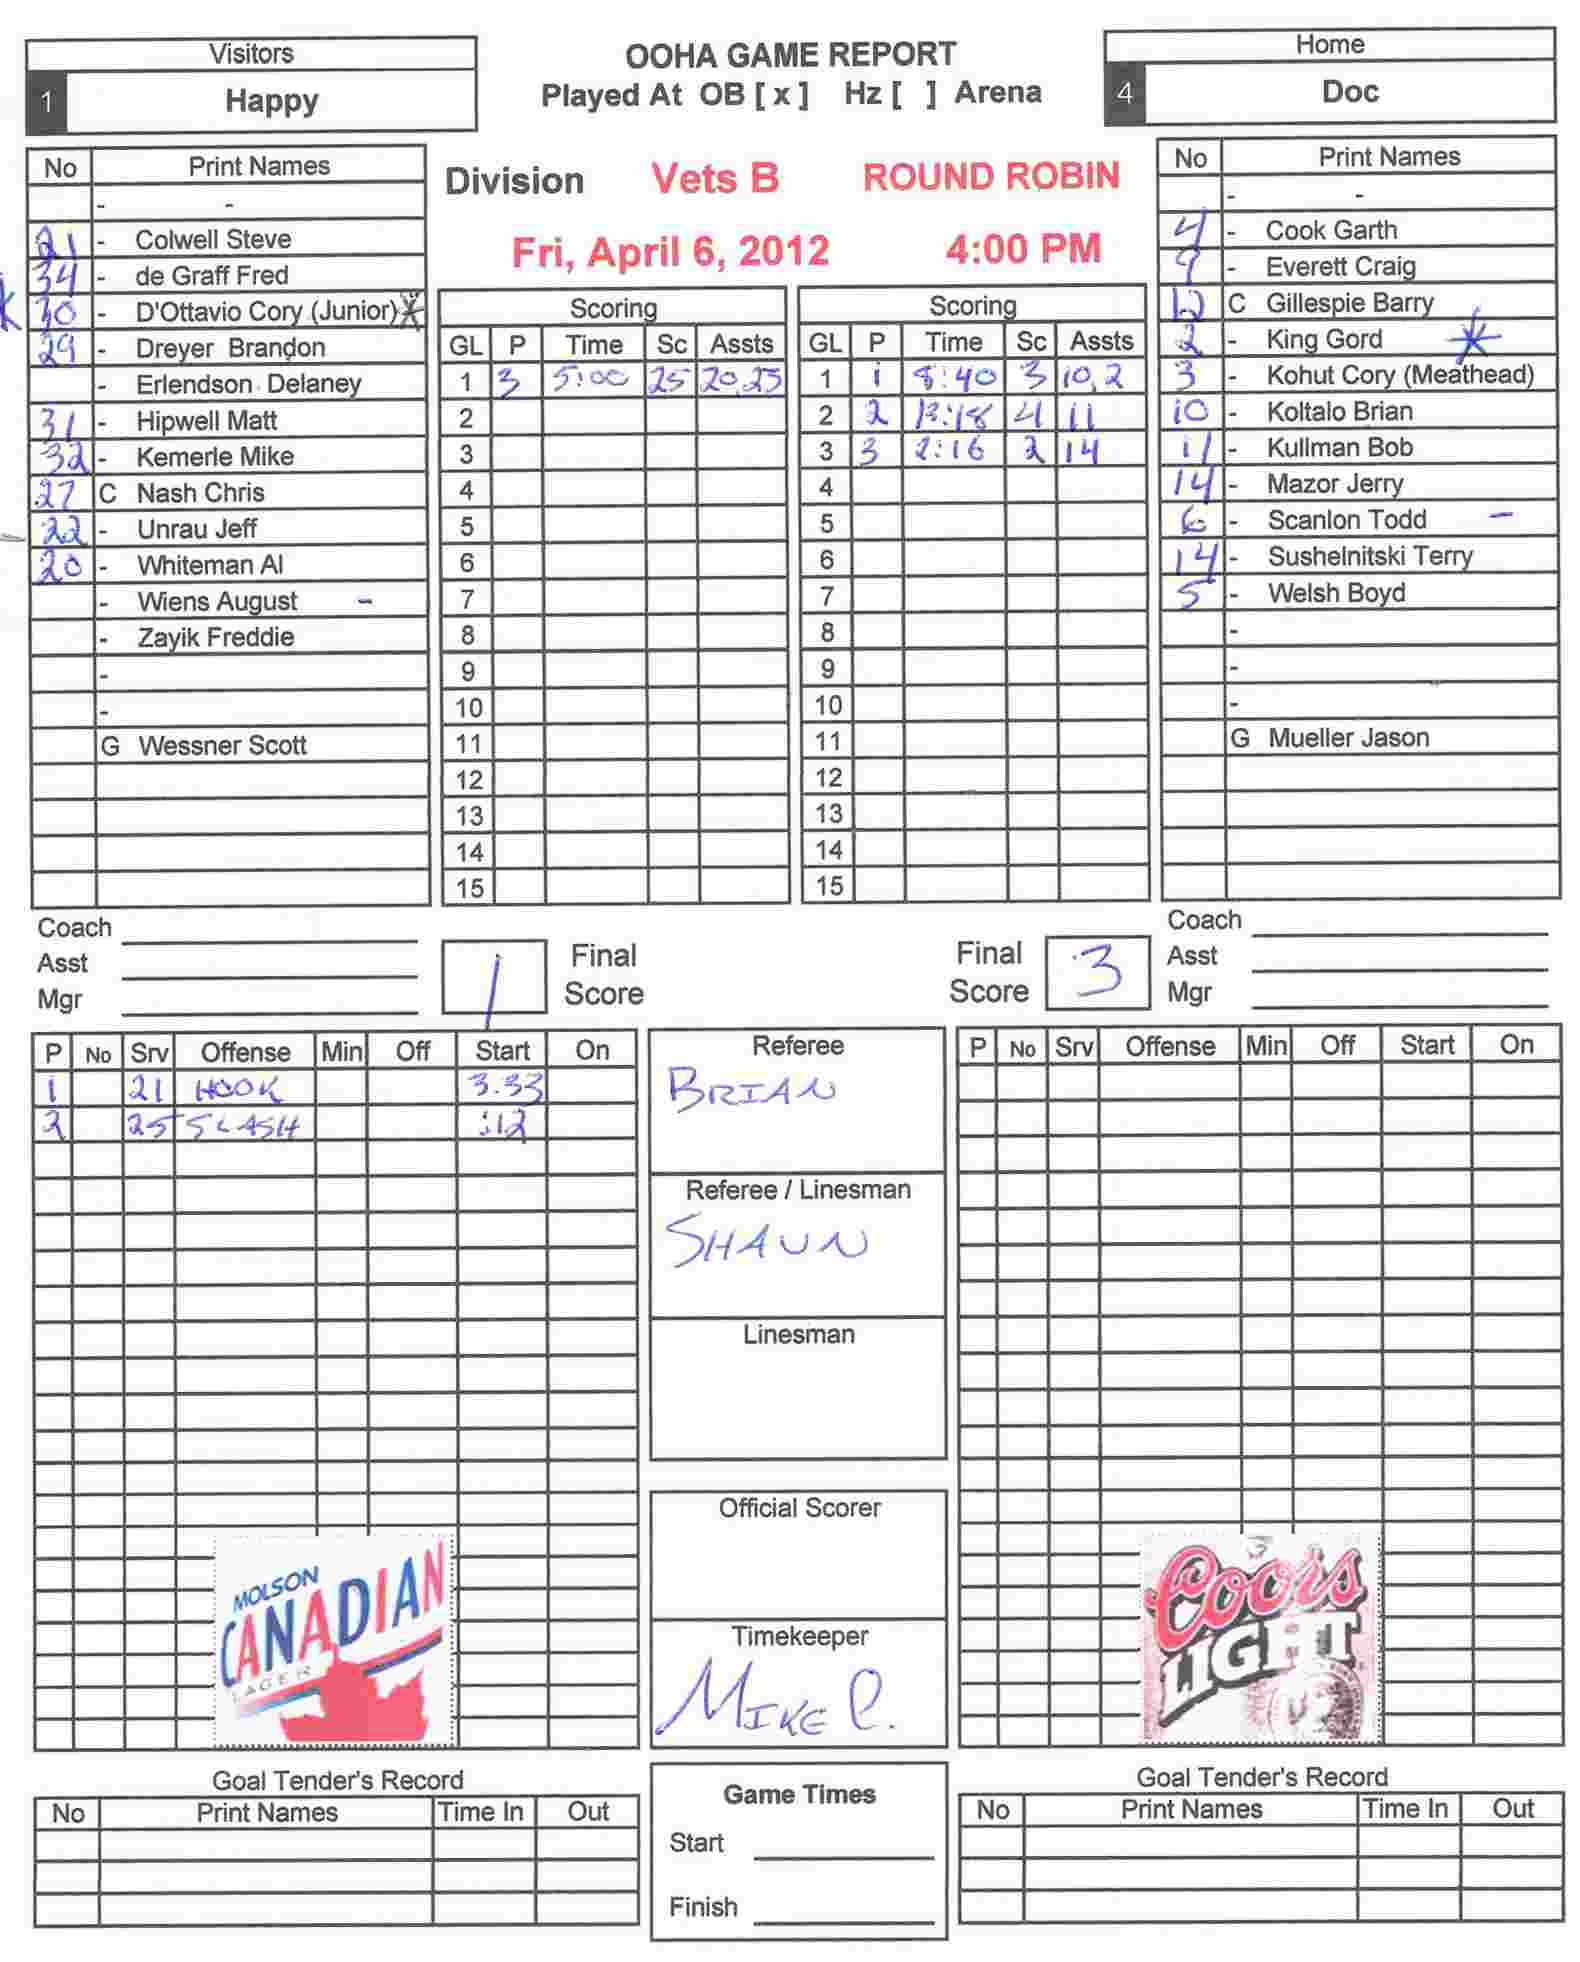 Visitors
1 Happy
OOHA GAME REPORT
Played At OB [ x ] Hz [ ] Arena
Home
4 Doc
Division Vets B ROUND ROBIN
Fri, April 6, 2012 4:00 PM
No Print Names
- -
21 - Colwell Steve
34 - de Graff Fred
30 - D'Ottavio Cory (Junior)
29 - Dreyer Brandon
- Erlendson Delaney
31 - Hipwell Matt
32 - Kemerle Mike
27 C Nash Chris
22 - Unrau Jeff
20 - Whiteman Al
- Wiens August -
- Zayik Freddie
-
-
G Wessner Scott
Scoring
GL P Time Sc Assts
1 3 5:00 25 20,25
2
3
4
5
6
7
8
9
10
11
12
13
14
15
Scoring
GL P Time Sc Assts
1 1 8:40 3 10,2
2 2 13:18 4 11
3 3 2:16 2 14
4
5
6
7
8
9
10
11
12
13
14
15
No Print Names
- -
4 - Cook Garth
9 - Everett Craig
12 C Gillespie Barry
2 - King Gord
3 - Kohut Cory (Meathead)
10 - Koltalo Brian
11 - Kullman Bob
14 - Mazor Jerry
6 - Scanlon Todd -
14 - Sushelnitski Terry
5 - Welsh Boyd
-
-
-
G Mueller Jason
Coach
Asst
Mgr
1 Final Score
Final Score 3
Coach
Asst
Mgr
P No Srv Offense Min Off Start On
1 21 HOOK 3.33
2 25 SLASH :12
MOLSON
CANADIAN
LAGER
Referee
BRIAN
Referee / Linesman
SHAUN
Linesman
Official Scorer
Timekeeper
MIKE P.
P No Srv Offense Min Off Start On
Coors
LIGHT
Goal Tender's Record
No Print Names Time In Out
Game Times
Start
Finish
Goal Tender's Record
No Print Names Time In Out